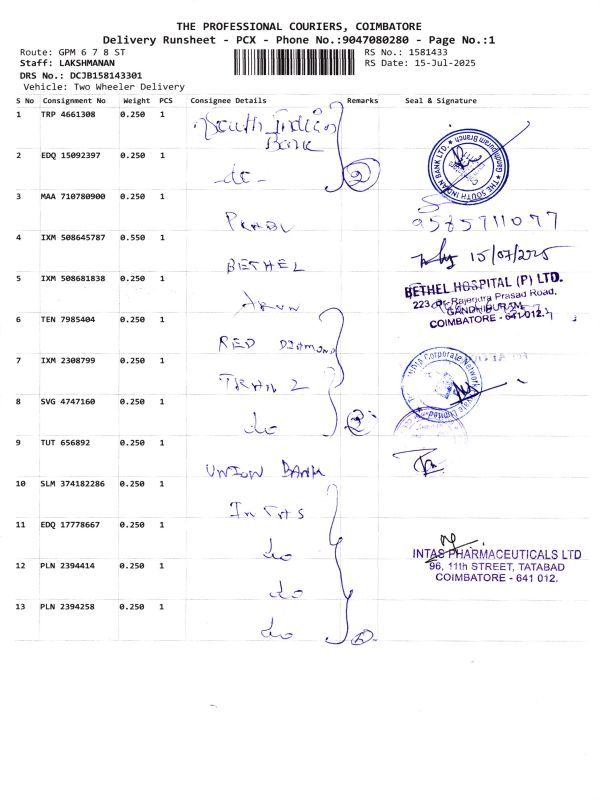 THE PROFESSIONAL COURIERS, COIMBATORE
Delivery Runsheet - PCX - Phone No.:9047080280 - Page No.:1
Route: GPM 6 7 8 ST
RS No.: 1581433
Staff: LAKSHMANAN
RS Date: 15-Jul-2025
DRS No.: DCJB158143301
Vehicle: Two Wheeler Delivery
S No Consignment No Weight PCS Consignee Details Remarks Seal & Signature
1 TRP 4661308 0.250 1 South Indian Bank
2 EDQ 15092397 0.250 1 -do- 2
THE SOUTH INDIAN BANK LTD. Gandhipuram Branch
3 MAA 710780900 0.250 1 PRABU 9585711077
4 IXM 508645787 0.550 1 BETHEL 15/07/2025
5 IXM 508681838 0.250 1 ARUN
BETHEL HOSPITAL (P) LTD.
223, Dr. Rajendra Prasad Road,
GANDHIPURAM,
COIMBATORE - 641 012.
6 TEN 7985404 0.250 1 RED DIAMOND
7 IXM 2308799 0.250 1 TRAN 2
8 SVG 4747160 0.250 1 do 3
India Corporate Network
9 TUT 656892 0.250 1 UNION BANK
10 SLM 374182286 0.250 1 INTAS
11 EDQ 17778667 0.250 1 do
INTAS PHARMACEUTICALS LTD
96, 11th STREET, TATABAD
COIMBATORE - 641 012.
12 PLN 2394414 0.250 1 do
13 PLN 2394258 0.250 1 do